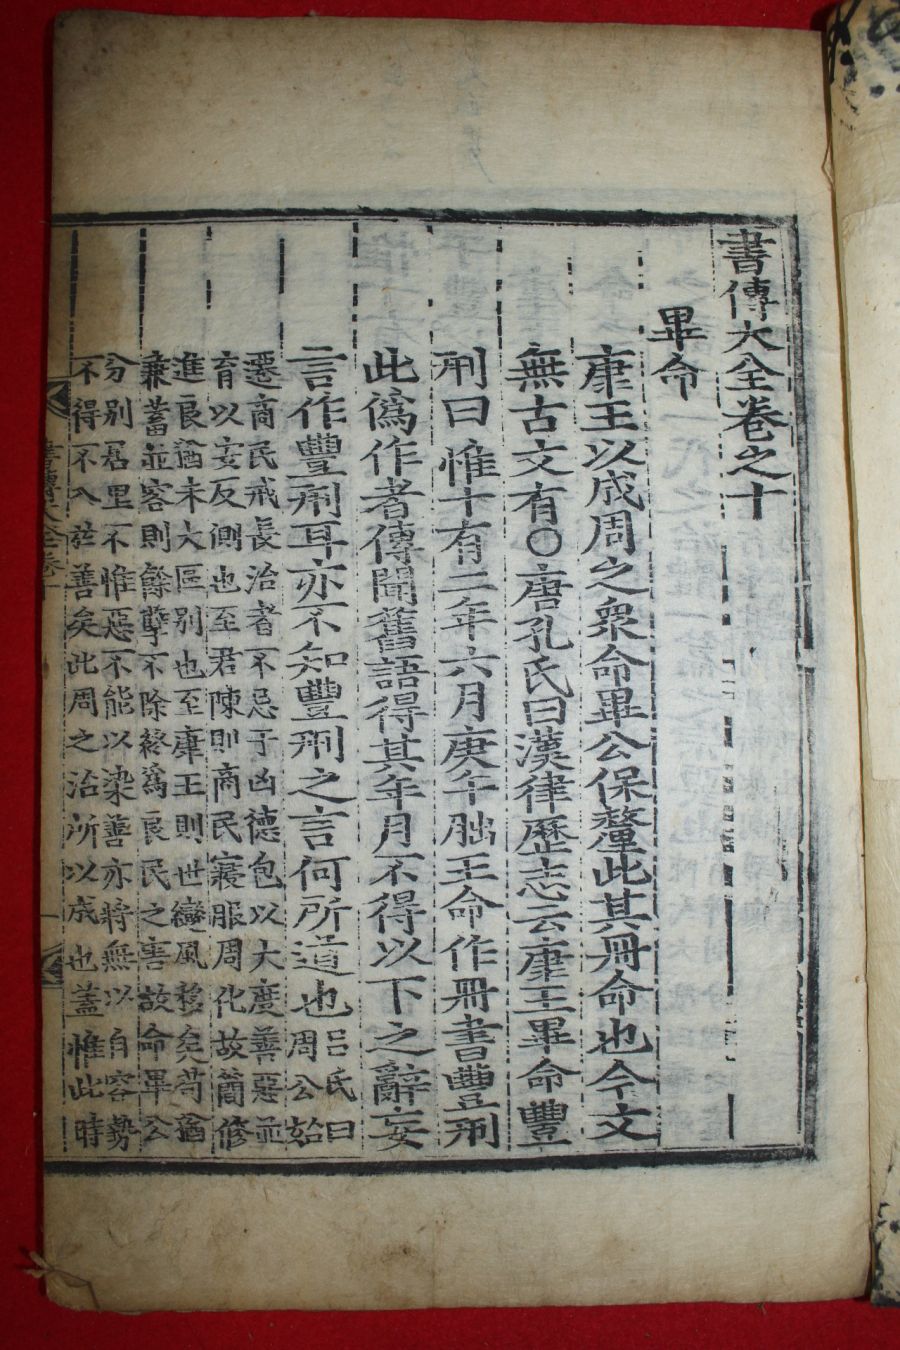 書傳大全卷之十
畢命
康王以成周之衆命畢公保釐此其冊命也今文
無古文有○唐孔氏曰漢律歷志云康王畢命豐
刑曰惟十有二年六月庚午朏王命作冊書豐刑
此僞作者傳聞舊語得其年月不得以下之辭妄
言作豐刑耳亦不知豐刑之言何所道也呂氏曰
周公始
遷商民戒長治者不忌于凶德包以大度善惡並
育以安反側也至君陳則商民寖服周化故簡修
進良猶未大區别也至康王則世變風移矣苟猶
兼蓄並容則餘孽不除終爲良民之害故命畢公
分别居里不惟惡不能以染善亦將無以自容勢
不得不入於善矣此周之治所以成也蓋惟此時
書傳大全卷十